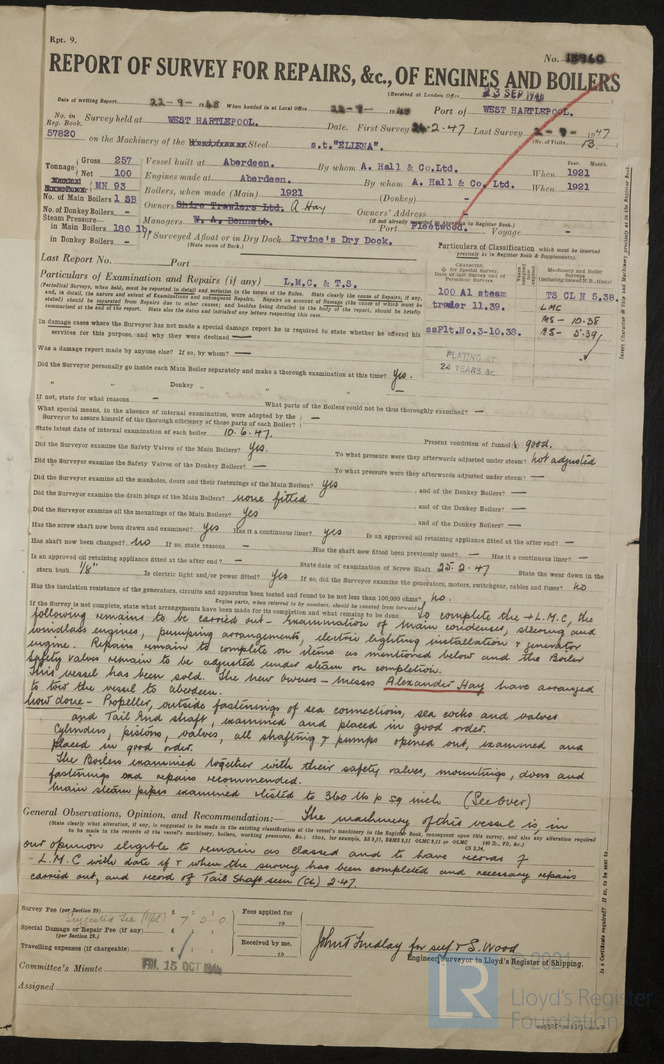 Rpt. 9.
No. 18960
REPORT OF SURVEY FOR REPAIRS, &c., OF ENGINES AND BOILERS
(Received at London Office 23 SEP 1948
Date of writing Report 22-9-1948 When handed in at Local Office 22-9-1948 Port of WEST HARTLEPOOL.
No. in Reg. Book. Survey held at WEST HARTLEPOOL. Date. First Survey 24-2-47 Last Survey 2-9-1947
57820 on the Machinery of the Steel s.t."ELLENA". (No. of Visits 13.
Tonnage Gross 257 Vessel built at Aberdeen. By whom A. Hall & Co.Ltd. When Year. Month. 1921
Net 100 Engines made at Aberdeen. By whom A. Hall & Co.Ltd. When 1921
MN 93 Boilers, when made (Main) 1921 (Donkey) -
No. of Main Boilers 1 SB Owners Shire Trawlers Ltd. A Hay Owners' Address -
(if not already recorded in Appendix to Register Book.)
No. of Donkey Boilers - Managers W. A. Bennett. Port Fleetwood. Voyage -
Steam Pressure- in Main Boilers 180 lb. If Surveyed Afloat or in Dry Dock Irvine's Dry Dock.
in Donkey Boilers - (State name of Dock.)
Last Report No. Port
Particulars of Classification which must be inserted precisely as in Register Book & Supplements).
Particulars of Examination and Repairs (if any) L.M.C. & T.S.
100 A1 steam trawler 11.39.
ssFlt.No.3-10.38.
TS CL N 5.38.
LMC
MS - 10.38
BS - 5.39
PLATING AT 24 YEARS &c
(Periodical Surveys, when held, must be reported in detail and seriatim in the terms of the Rules. State clearly the cause of Repairs, if any, and, in detail, the nature and extent of Examinations and subsequent Repairs.
In damage cases where the Surveyor has not made a special damage report he is required to state whether he offered his services for this purpose, and why they were declined —
Was a damage report made by anyone else? If so, by whom? —
Did the Surveyor personally go inside each Main Boiler separately and make a thorough examination at this time? Yes.
" " Donkey " " " —
If not, state for what reasons - What parts of the Boilers could not be thoroughly examined? —
What special means, in the absence of internal examination, were adopted by the Surveyor to assure himself of the thorough efficiency of those parts of each Boiler? —
State latest date of internal examination of each boiler 10.6.47. Present condition of funnel good.
Did the Surveyor examine the Safety Valves of the Main Boilers? Yes. To what pressure were they afterwards adjusted under steam? not adjusted
Did the Surveyor examine the Safety Valves of the Donkey Boilers? — To what pressure were they afterwards adjusted under steam? —
Did the Surveyor examine all the manholes, doors and their fastenings of the Main Boilers? Yes , and of the Donkey Boilers? —
Did the Surveyor examine the drain plugs of the Main Boilers? none fitted , and of the Donkey Boilers? —
Did the Surveyor examine all the mountings of the Main Boilers? Yes , and of the Donkey Boilers? —
Has the screw shaft now been drawn and examined? Yes Has it a continuous liner? yes Is an approved oil retaining appliance fitted at the after end? —
Has shaft now been changed? no If so, state reasons — Has the shaft now fitted been previously used? — Has it a continuous liner? —
Is an approved oil retaining appliance fitted at the after end? — State date of examination of Screw Shaft 25.2.47 State the wear down in the
stern bush 1/8" Is electric light and/or power fitted? Yes If so, did the Surveyor examine the generators, motors, switchgear, cables and fuses? no
Has the insulation resistance of the generators, circuits and apparatus been tested and found to be not less than 100,000 ohms? no.
Engine parts, when referred to by numbers, should be counted from forward
If the Survey is not complete, state what arrangements have been made for its completion and what remains to be done To complete the + L.M.C, the
following remains to be carried out - Examination of main condenser, steering and
windlass engines, pumping arrangements, electric lighting installation & generator
engine. Repairs remain to complete on items as mentioned below and the Boiler
Safety valves remain to be adjusted under steam on completion.
This vessel has been sold. The new owners - Messrs Alexander Hay have arranged
to tow the vessel to aberdeen.
now done - Propeller, outside fastenings of sea connections, sea cocks and valves
and Tail End shaft, examined and placed in good order.
Cylinders, pistons, valves, all shafting & pumps opened out, examined and
placed in good order.
The Boilers examined together with their safety valves, mountings, doors and
fastenings and repairs recommended.
main steam pipes examined & tested to 360 lbs p sq inch (See over)
General Observations, Opinion, and Recommendation:— The machinery of this vessel is, in
(State clearly what alteration, if any, is suggested to be made in the existing classification of the vessel's machinery in the Register Book, consequent upon this survey, and also any alteration required
our opinion eligible to remain as classed and to have records of
- L.M.C with date if & when the survey has been completed and necessary repairs
carried out, and record of Tail Shaft seen (CL) 2.47.
Survey Fee (per Section 29) £ 7 : 0 : 0 Fees applied for
Special Damage or Repair Fee (if any) £ : : 19
(per Section 29.)
Travelling expenses (if chargeable) £ : : Received by me, 19
John T Findlay for self & S. Wood
Engineer Surveyor to Lloyd's Register of Shipping.
Committee's Minute FRI. 15 OCT 1948
Assigned
Insert Character of Ship and Machinery precisely as in the Register Book.
Is a Certificate required? If so, to be sent to
© 2021
LR
Lloyd's Register
Foundation